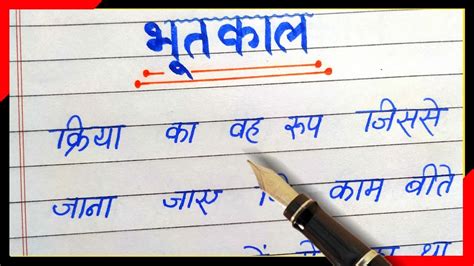 भूतकाल
क्रिया का वह रूप जिससे
जाना जाए काम बीते
था